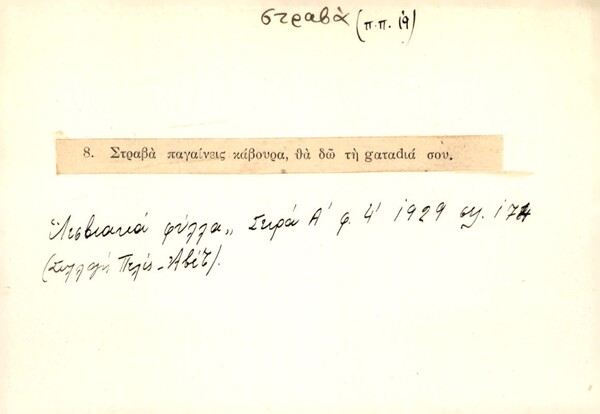 στραβὰ (π.π. ιθ)
8. Στραβὰ παγαίνεις κάβουρα, θὰ δῶ τὴ gαταdιά σου.
"Λεσβιακά φύλλα,, Σειρά Α' φ 4' 1929 σελ. 174
(Συλλογή